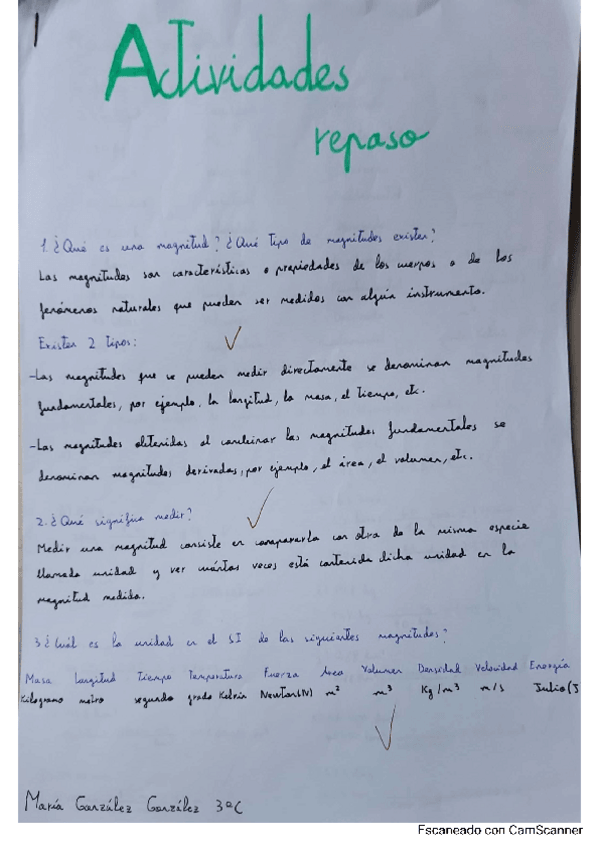 Actividades
repaso
1. ¿Qué es una magnitud? ¿Qué tipo de magnitudes existen?
Las magnitudes son características o propiedades de los cuerpos o de los
fenómenos naturales que pueden ser medidos con algún instrumento.
Existen 2 tipos:
-Las magnitudes que se pueden medir directamente se denominan magnitudes
fundamentales, por ejemplo, la longitud, la masa, el tiempo, etc.
-Las magnitudes obtenidas al combinar las magnitudes fundamentales se
denominan magnitudes derivadas, por ejemplo, el área, el volumen, etc.
2. ¿Qué significa medir?
Medir una magnitud consiste en compararla con otra de la misma especie
llamada unidad y ver cuántas veces está contenida dicha unidad en la
magnitud medida.
3. ¿Cuál es la unidad en el SI de las siguientes magnitudes?
Masa Longitud Tiempo Temperatura Fuerza Área Volumen Densidad Velocidad Energía
Kilogramo metro segundo grado Kelvin Newton(N) m² m³ Kg/m³ m/s Julio(J
María González González 3ºC
Escaneado con CamScanner